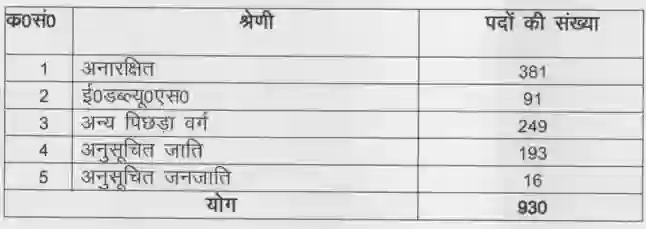 क0सं0 श्रेणी पदों की संख्या
1 अनारक्षित 381
2 ई0डब्ल्यू0एस0 91
3 अन्य पिछड़ा वर्ग 249
4 अनुसूचित जाति 193
5 अनुसूचित जनजाति 16
योग 930